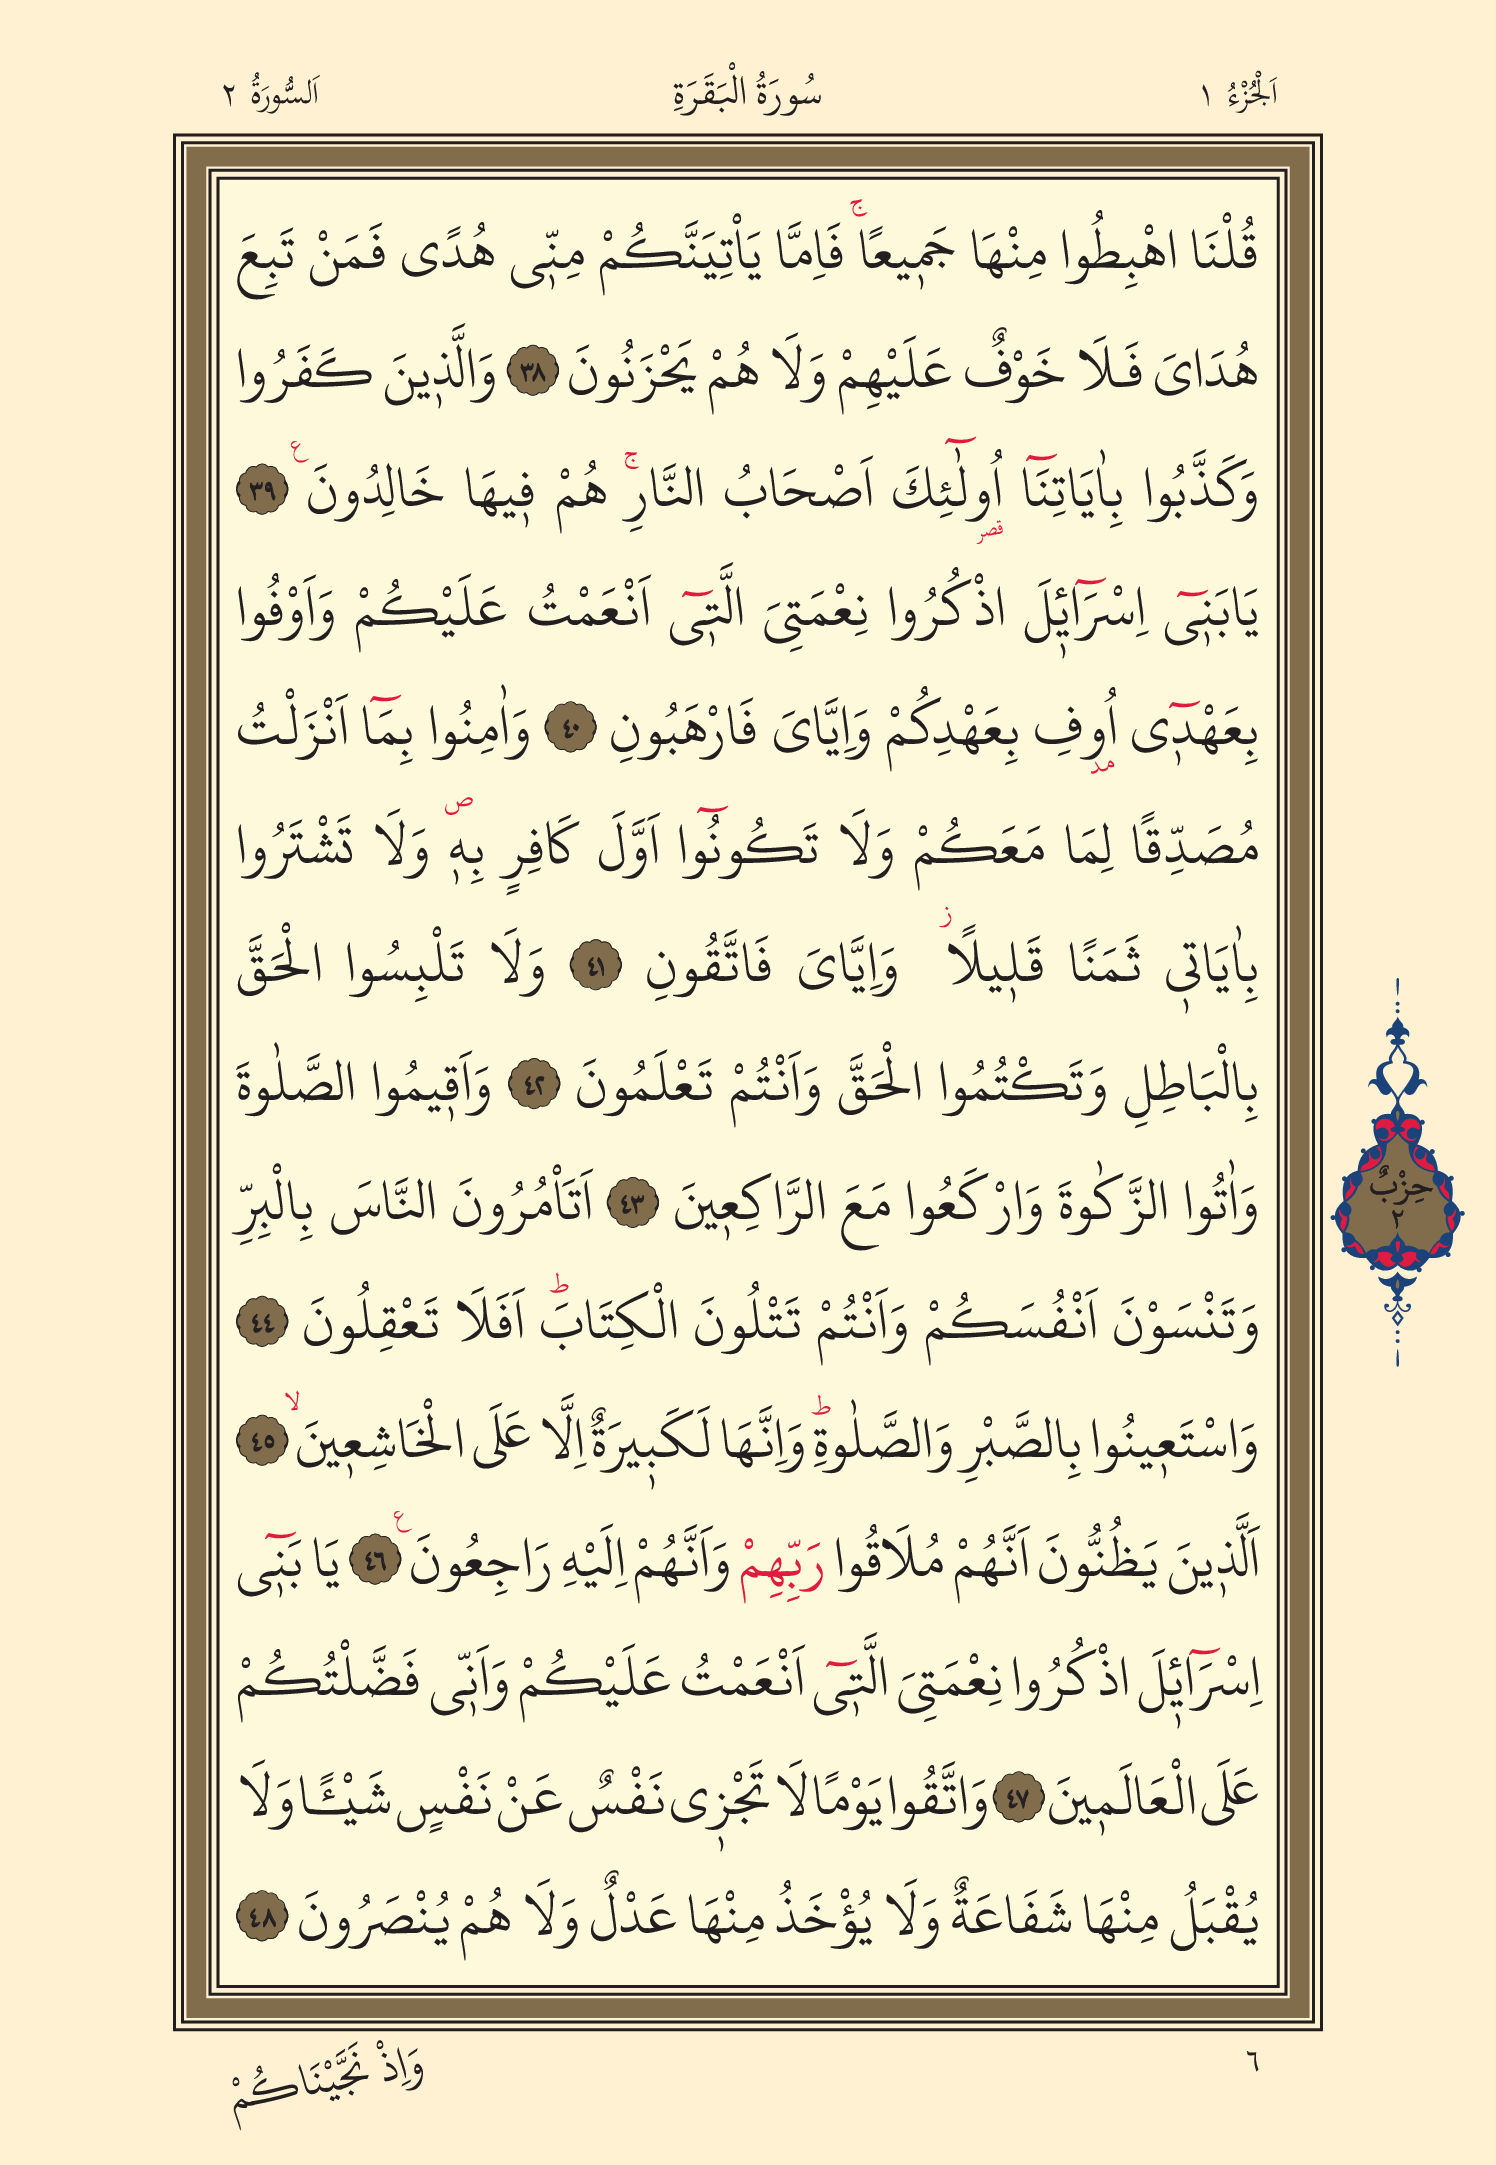 اَلْجُزْءُ ١
سُورَةُ الْبَقَرَةِ
اَلسُّورَةُ ٢
قُلْنَا اهْبِطُوا مِنْهَا جَمٖيعًاۚ فَاِمَّا يَاْتِيَنَّكُمْ مِنّٖى هُدًى فَمَنْ تَبِعَ
هُدَاىَ فَلَا خَوْفٌ عَلَيْهِمْ وَلَا هُمْ يَحْزَنُونَ ٣٨ وَالَّذٖينَ كَفَرُوا
وَكَذَّبُوا بِاٰيَاتِنَٓا اُو۬لٰٓئِكَ اَصْحَابُ النَّارِۚ هُمْ فٖيهَا خَالِدُونَ ع ٣٩
قصر
يَابَنٖٓى اِسْرَٓائٖلَ اذْكُرُوا نِعْمَتِىَ الَّتٖٓى اَنْعَمْتُ عَلَيْكُمْ وَاَوْفُوا
بِعَهْدٖٓى اُوفِ بِعَهْدِكُمْ وَاِيَّاىَ فَارْهَبُونِ ٤٠ وَاٰمِنُوا بِمَٓا اَنْزَلْتُ
مد
مُصَدِّقًا لِمَا مَعَكُمْ وَلَا تَكُونُٓوا اَوَّلَ كَافِرٍ بِهٖ ص وَلَا تَشْتَرُوا
بِاٰيَاتٖى ثَمَنًا قَلٖيلًا ز وَاِيَّاىَ فَاتَّقُونِ ٤١ وَلَا تَلْبِسُوا الْحَقَّ
بِالْبَاطِلِ وَتَكْتُمُوا الْحَقَّ وَاَنْتُمْ تَعْلَمُونَ ٤٢ وَاَقٖيمُوا الصَّلٰوةَ
وَاٰتُوا الزَّكٰوةَ وَارْكَعُوا مَعَ الرَّاكِعٖينَ ٤٣ اَتَاْمُرُونَ النَّاسَ بِالْبِرِّ
وَتَنْسَوْنَ اَنْفُسَكُمْ وَاَنْتُمْ تَتْلُونَ الْكِتَابَ ط اَفَلَا تَعْقِلُونَ ٤٤
وَاسْتَعٖينُوا بِالصَّبْرِ وَالصَّلٰوةِ ط وَاِنَّهَا لَكَبٖيرَةٌ اِلَّا عَلَى الْخَاشِعٖينَ لا ٤٥
اَلَّذٖينَ يَظُنُّونَ اَنَّهُمْ مُلَاقُوا رَبِّهِمْ وَاَنَّهُمْ اِلَيْهِ رَاجِعُونَ ع ٤٦ يَا بَنٖٓى
اِسْرَٓائٖلَ اذْكُرُوا نِعْمَتِىَ الَّتٖٓى اَنْعَمْتُ عَلَيْكُمْ وَاَنّٖى فَضَّلْتُكُمْ
عَلَى الْعَالَمٖينَ ٤٧ وَاتَّقُوا يَوْمًا لَا تَجْزٖى نَفْسٌ عَنْ نَفْسٍ شَيْـًٔا وَلَا
يُقْبَلُ مِنْهَا شَفَاعَةٌ وَلَا يُؤْخَذُ مِنْهَا عَدْلٌ وَلَا هُمْ يُنْصَرُونَ ٤٨
حِزْبٌ
٢
٦
وَاِذْ نَجَّيْنَاكُمْ